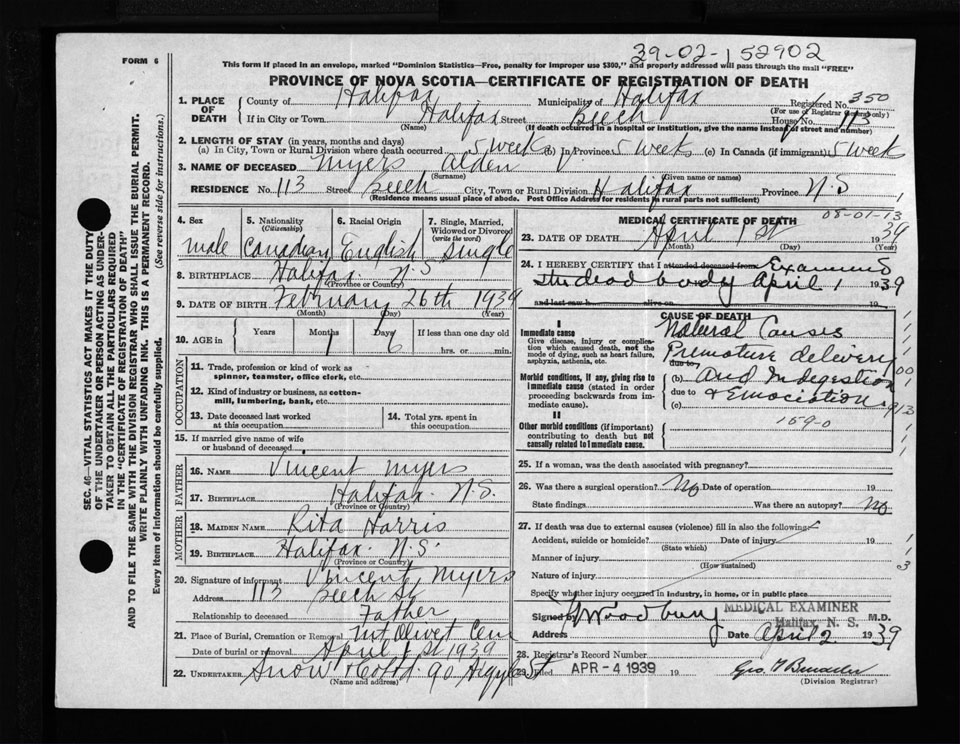 39-02-152902
FORM 6
This form if placed in an envelope, marked "Dominion Statistics—Free, penalty for improper use $300," and properly addressed will pass through the mail "FREE"
PROVINCE OF NOVA SCOTIA—CERTIFICATE OF REGISTRATION OF DEATH
1. PLACE OF DEATH
County of Halifax Municipality of Halifax Registered No. 350
(For use of Registrar General only)
If in City or Town Halifax Street Beech House No. 113
(Name) (If death occurred in a hospital or institution, give the name instead of street and number)
2. LENGTH OF STAY (in years, months and days)
(a) In City, Town or Rural Division where death occurred 5 week (b) In Province 5 week (c) In Canada (if immigrant) 5 week
3. NAME OF DECEASED Myers Alden V
(Surname) (Given name or names)
RESIDENCE No. 113 Street Beech City, Town or Rural Division Halifax Province N.S
(Residence means usual place of abode. Post Office Address for residents in rural parts not sufficient)
4. Sex
male
5. Nationality (Citizenship)
Canadian
6. Racial Origin
English
7. Single, Married, Widowed or Divorced (write the word)
Single
8. BIRTHPLACE Halifax N.S
(Province or Country)
9. DATE OF BIRTH February 26th 1939
(Month) (Day) (Year)
10. AGE in Years Months 1 Days 6 If less than one day old
hrs. or min.
OCCUPATION
11. Trade, profession or kind of work as spinner, teamster, office clerk, etc.
12. Kind of industry or business, as cotton-mill, lumbering, bank, etc.
13. Date deceased last worked at this occupation
14. Total yrs. spent in this occupation
15. If married give name of wife or husband of deceased
FATHER
16. NAME Vincent Myers
17. BIRTHPLACE Halifax N.S.
(Province or Country)
MOTHER
18. MAIDEN NAME Rita Harris
19. BIRTHPLACE Halifax N.S.
(Province or Country)
20. Signature of informant Vincent Myers
Address 113 Beech St
Relationship to deceased Father
21. Place of Burial, Cremation or Removal Mt Olivet Cem
Date of burial or removal April 1st 1939
22. UNDERTAKER Snow & Co Ltd 90 Argyle St
(Name and address)
MEDICAL CERTIFICATE OF DEATH
08-01-13
23. DATE OF DEATH April 1st 1939
(Month) (Day) (Year)
24. I HEREBY CERTIFY that I attended deceased from Examined
the dead body April 1 1939
and last saw h alive on
CAUSE OF DEATH
I
Immediate cause
Give disease, injury or complication which caused death, not the mode of dying, such as heart failure, asphyxia, asthenia, etc.
Natural Causes
Premature delivery
due to
Morbid conditions, if any, giving rise to immediate cause (stated in order proceeding backwards from immediate cause)
(b) and Indigestion
due to & Emaciation
(c)
II
Other morbid conditions (if important) contributing to death but not causally related to immediate cause.
159-0
25. If a woman, was the death associated with pregnancy?
26. Was there a surgical operation? No Date of operation 19
State findings Was there an autopsy? No
27. If death was due to external causes (violence) fill in also the following:
Accident, suicide or homicide? Date of injury 19
(State which)
Manner of injury
(How sustained)
Nature of injury
Specify whether injury occurred in industry, in home, or in public place
Signed by Woodbury M.D.
MEDICAL EXAMINER
Halifax, N. S.
Address Date April 2 1939
28. Registrar's Record Number
29. Filed APR - 4 1939 19
(Division Registrar)
SEC. 46—VITAL STATISTICS ACT MAKES IT THE DUTY
OF THE UNDERTAKER OR PERSON ACTING AS UNDER-
TAKER TO OBTAIN ALL THE PARTICULARS REQUIRED
IN THE "CERTIFICATE OF REGISTRATION OF DEATH"
AND TO FILE THE SAME WITH THE DIVISION REGISTRAR WHO SHALL ISSUE THE BURIAL PERMIT.
WRITE PLAINLY WITH UNFADING INK. THIS IS A PERMANENT RECORD.
Every item of information should be carefully supplied. (See reverse side for instructions.)